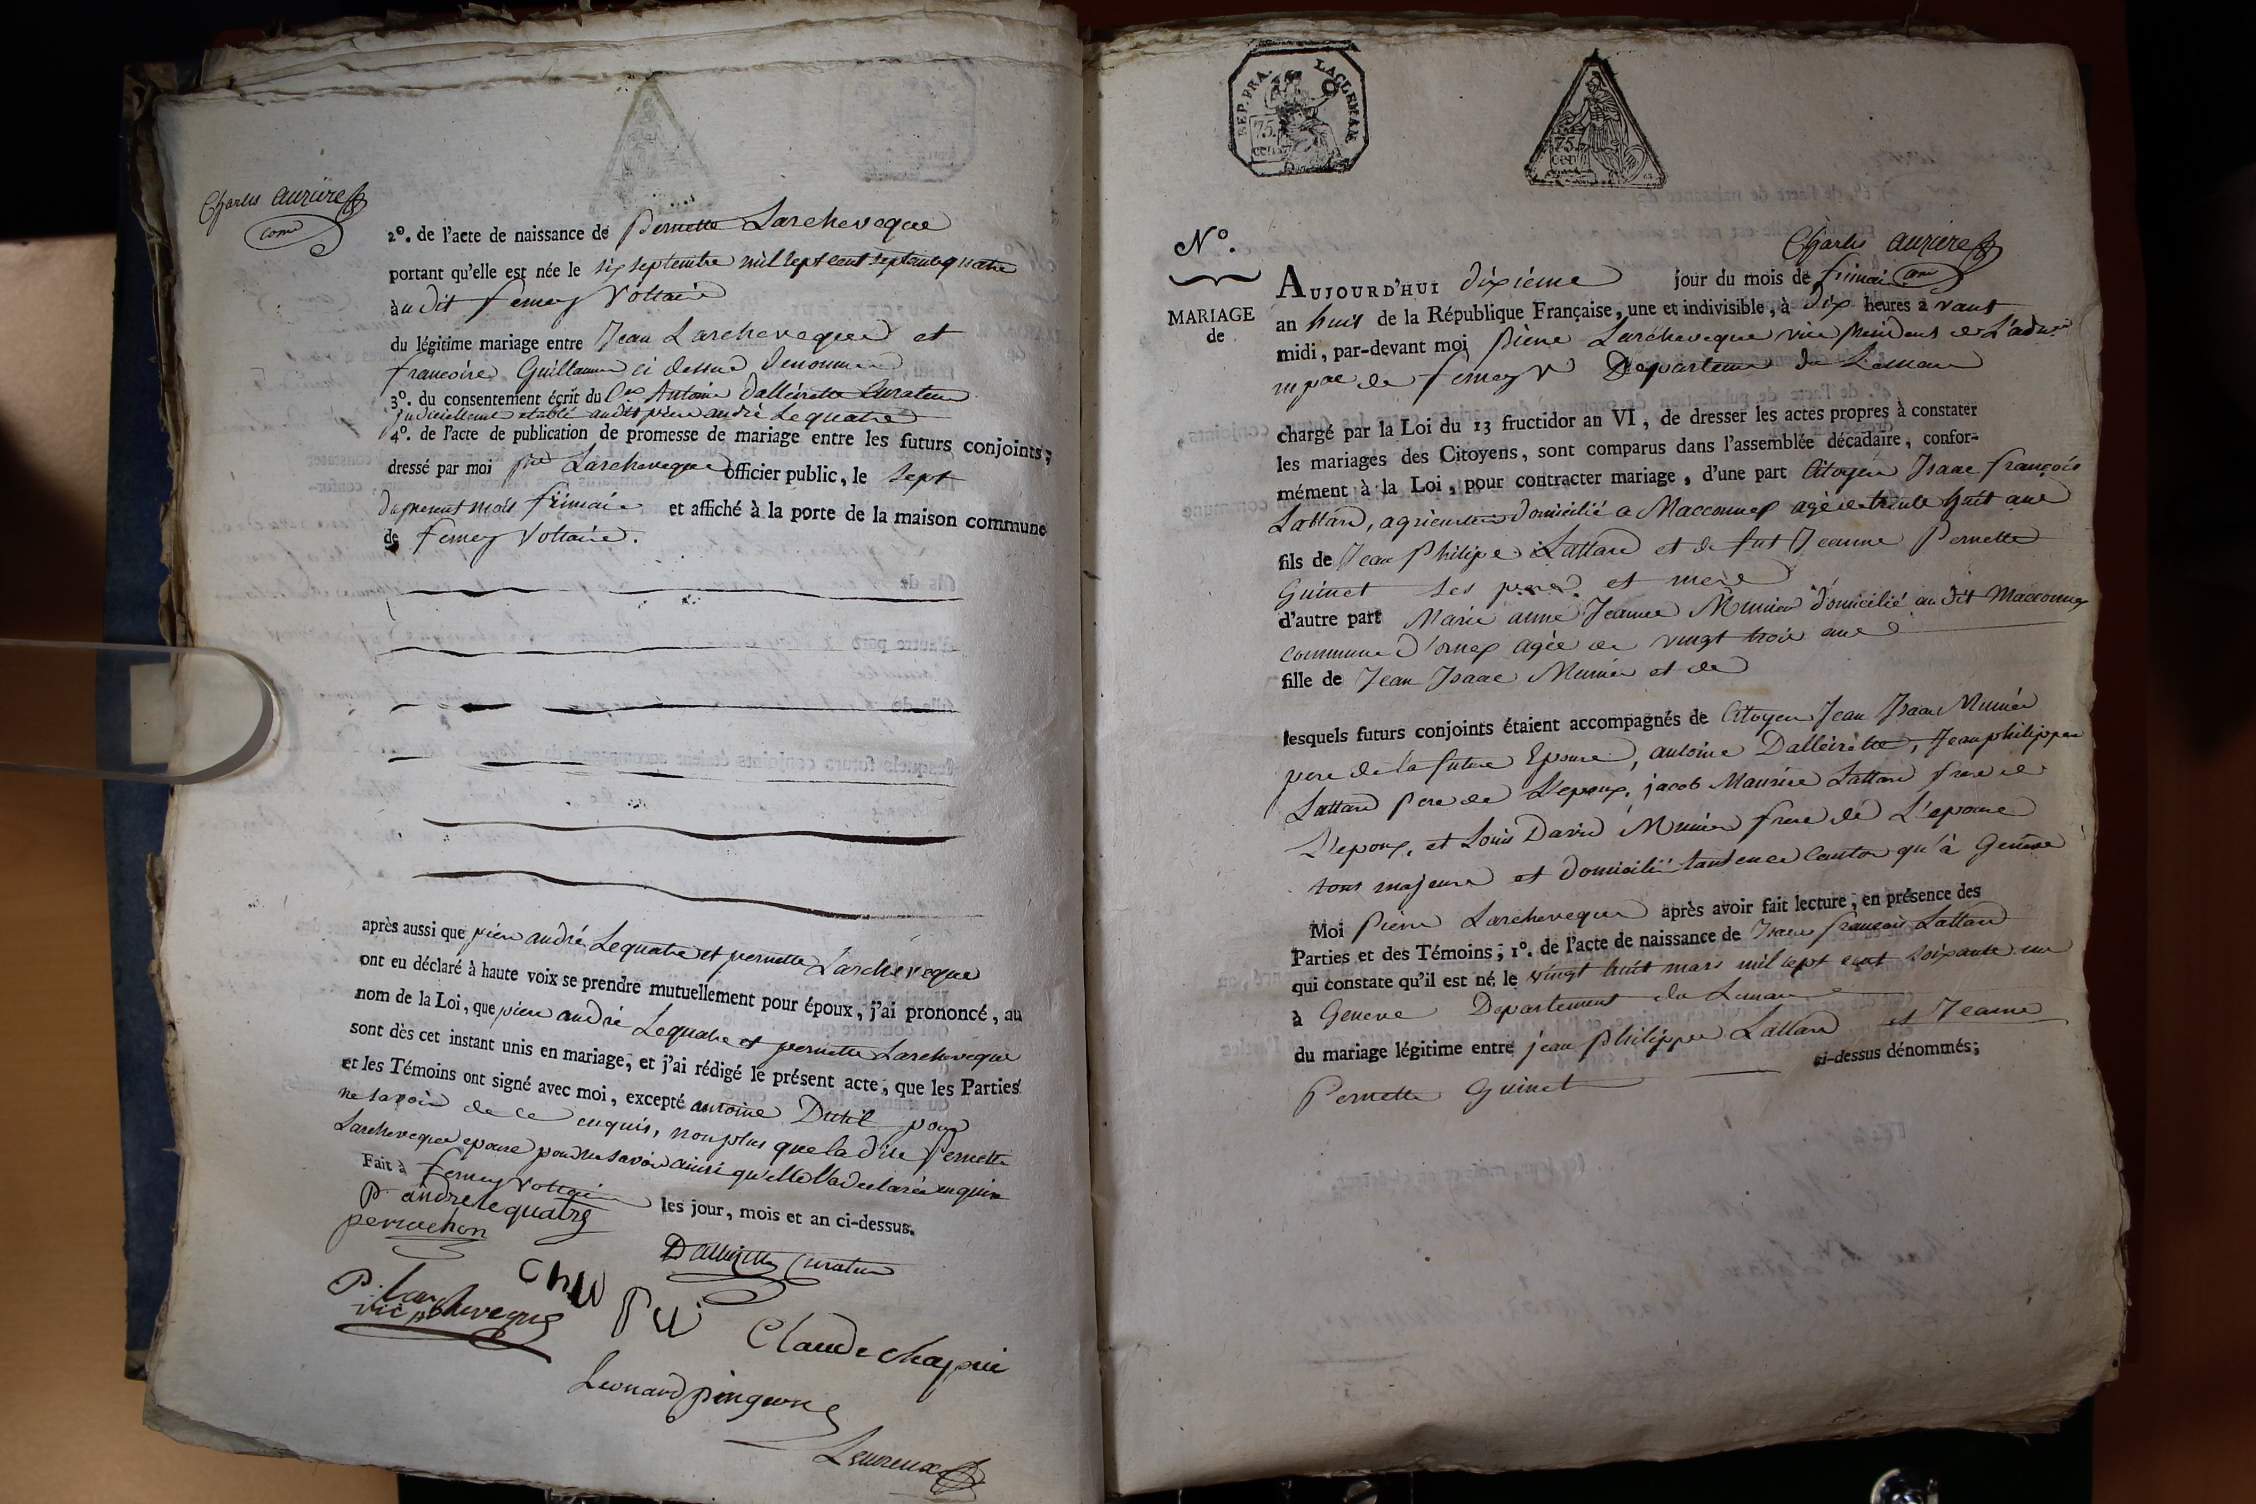 Charles aurière
com
2º. de l'acte de naissance de Pernette Larcheveque
portant qu'elle est née le six septembre mil sept cent septante quatre
au dit ferney Voltaire
du légitime mariage entre Jean Larcheveque et
francoise Guillaume ci dessus denommé
3º. du consentement écrit du Cen Antoine Dalleizette Curateur
judiciellement etabli audit pierre andré Lequatre
4º. de l'acte de publication de promesse de mariage entre les futurs conjoints,
dressé par moi pre Larcheveque officier public, le sept
du present mois frimaire et affiché à la porte de la maison commune
de ferney Voltaire.
après aussi que pierre andré Lequatre et pernette Larcheveque
ont eu déclaré à haute voix se prendre mutuellement pour époux, j'ai prononcé, au
nom de la Loi, que pierre andré Lequatre et pernette Larcheveque
sont dès cet instant unis en mariage, et j'ai rédigé le présent acte, que les Parties
et les Témoins ont signé avec moi, excepté antoine Dutil pour
ne savoir de ce enquis, non plus que la dite Pernette
Larcheveque epouse pour ne savoir ainsi qu'elle l'a declaré enquise
Fait à ferney voltaire les jour, mois et an ci-dessus.
P. andre lequatre
perrachon
Dalleizette Curateur
P. Larcheveque
vic p
Claude chapuis
Leonard pingeon
Lewreux
REP. FRA.
LACLEMAN
75.
cen
75.
cen
Nº.
Charles aurière
com
MARIAGE
de
AUJOURD'HUI dixieme jour du mois de frimaire
an huit de la République Française, une et indivisible, à dix heures avant
midi, par-devant moi Pierre Larcheveque vice president de L'adm
mpale de ferney V Departement du Leman
chargé par la Loi du 13 fructidor an VI, de dresser les actes propres à constater
les mariages des Citoyens, sont comparus dans l'assemblée décadaire, confor-
mément à la Loi, pour contracter mariage, d'une part Citoyen Isaac françois
Lattard, agriculteur domicilié a Macconnex agé de trente huit ans
fils de Jean Philipe Lattard et de fut Jeanne Pernette
Guinet ses pere et mere
d'autre part Marie anne Jeanne Munier domicilié au dit Macconnex
commune d'ornex agée de vingt trois ans
fille de Jean Isaac Munier et de
lesquels futurs conjoints étaient accompagnés de Citoyen Jean Isaac Munier
pere de la future Epouse, antoine Dalleizette, Jean philippe
Lattard pere de L'epoux, jacob Maurice Lattard frere de
L'epoux, et Louis David Munier frere de L'epouse
tous majeurs et domicilié tant en ce Canton qu'à Genève
Moi Pierre Larcheveque après avoir fait lecture, en présence des
Parties et des Témoins, 1º. de l'acte de naissance de Isaac françois Lattard
qui constate qu'il est né le vingt huit mars mil sept cent soixante un
à Geneve Departement du Leman
du mariage légitime entre jean philippe Lattard et Jeanne
Pernette Guinet ci-dessus dénommés;